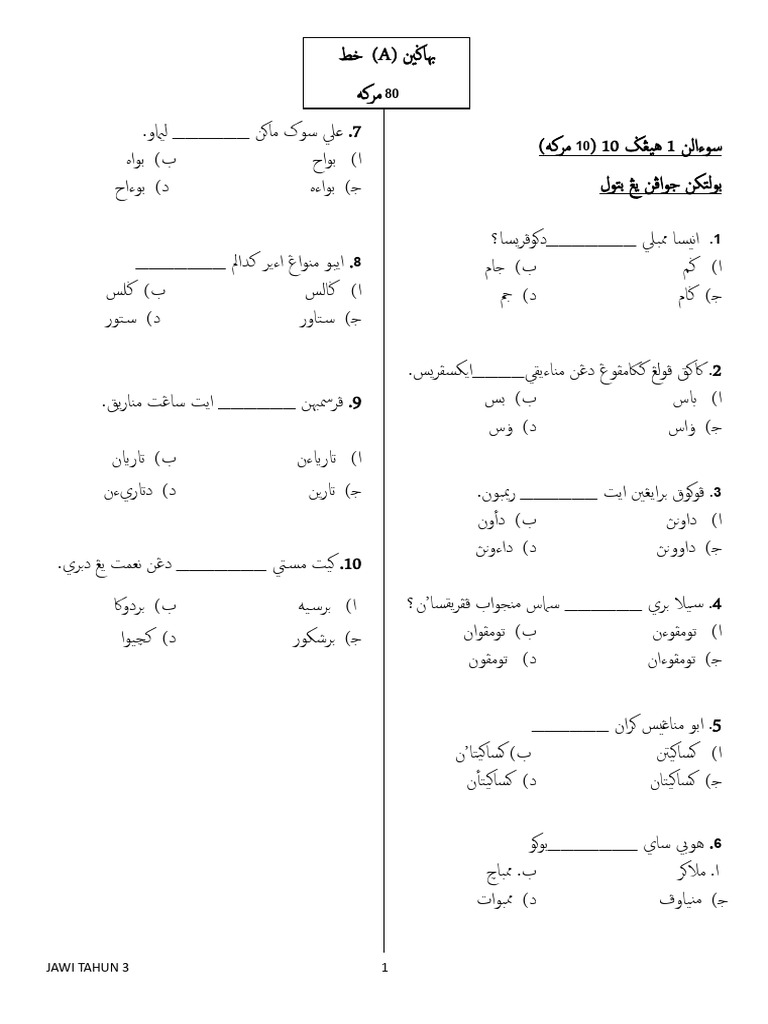 بهاݢين (A) خط
80 مركه
سوءالن 1 هيڠݢ 10 (10 مركه)
بولتكن جواڤن يڠ بتول
1. انيسا ممبلي __________دكوڤريسا؟
ا) ݢم ب) جام
ج) ݢام د) جم
2. كاكق ڤولڠ ككامڤوڠ دڠن مناءيقي______ايكسڤريس.
ا) باس ب) بس
ج) ۏاس د) ۏس
3. ڤوكوق برايڠين ايت _________ ريمبون.
ا) داونڽ ب) دأون
ج) داوونڽ د) داءونڽ
4. سيلا بري _________ سماس منجواب ڤڤريقسا'ن؟
ا) تومڤوءن ب) تومڤوان
ج) تومڤوءان د) تومڤون
5. ابو مناڠيس كران _________
ا) كساكيتن ب) كساكيتا'ن
ج) كساكيتان د) كساكيتأن
6. هوبي ساي __________بوكو
ا. ملاكر ب. ممباچ
ج) منياوق د) ممبوات
7. علي سوك ماكن _________ ليماو.
ا) بواح ب) بواه
ج) بواءه د) بوءاح
8. ايبو منواڠ اءير كدالم __________
ا) ݢالس ب) ݢلس
ج) ستاور د) ستور
9. ڤرسمبهن _________ ايت ساڠت مناريق.
ا) تارياءن ب) تاريان
ج) تارين د) دتاريءن
10. كيت مستي __________ دڠن نعمت يڠ دبري.
ا) برسيه ب) بردوكا
ج) برشكور د) كچيوا
JAWI TAHUN 3
1